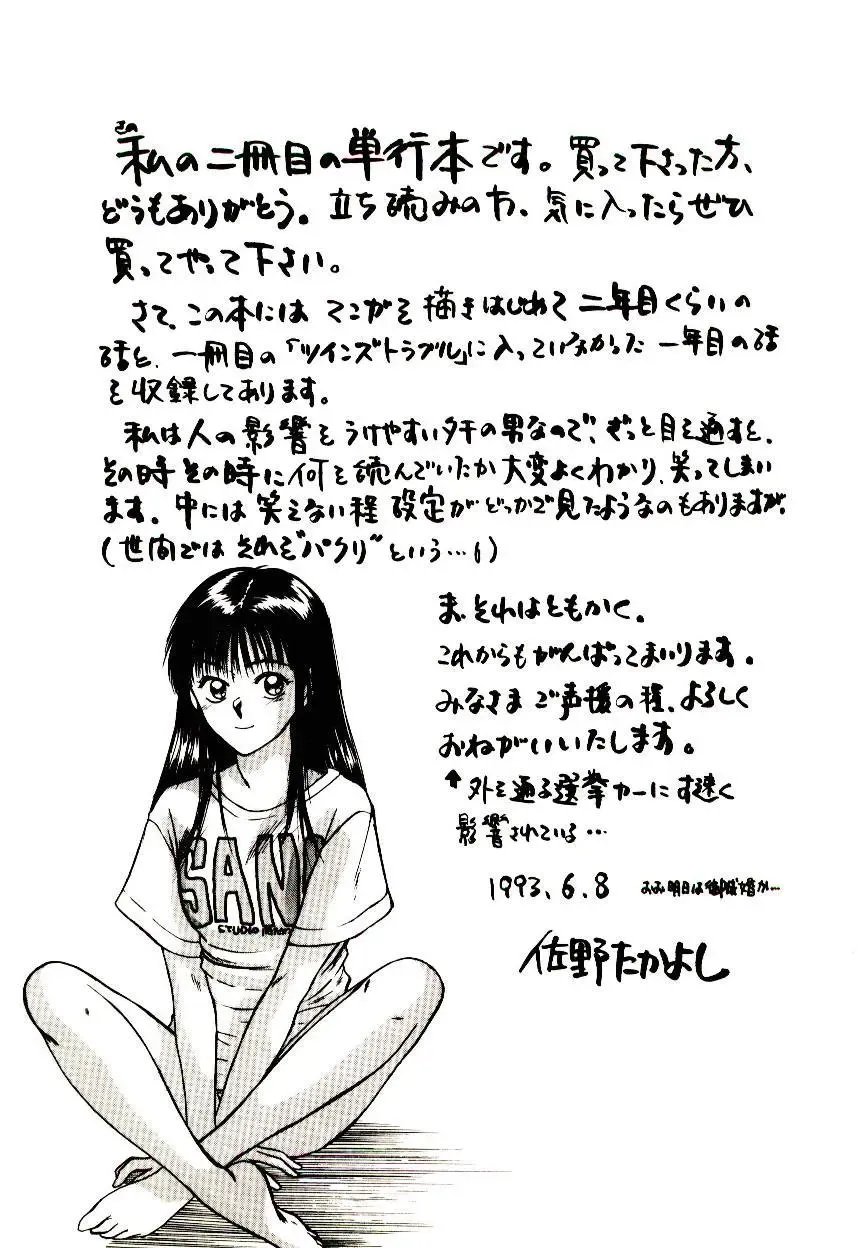 さの
私の二冊目の単行本です。買って下さった方、
どうもありがとう。立ち読みの方、気に入ったらぜひ
買ってやって下さい。
さて、この本にはマンガを描きはじめて二年目くらいの
話と、一冊目の「ツインズトラブル」に入っていなかった一年目の話
を収録してあります。
私は人の影響をうけやすいタチの男なので、ざっと目を通すと、
その時その時に何を読んでいたか大変よくわかり、笑ってしまい
ます。中には笑えない程設定がどっかで見たようなのもありますが、
(世間ではそれを"パクリ"という…!)
ま、それはともかく。
これからもがんばってまいります。
みなさまご声援の程、よろしく
おねがいいたします。
↑外を通る選挙カーにす速く
影響されている…
1993.6.8 おお明日は御成婚か…
佐野たかよし
SAN
STUDIO